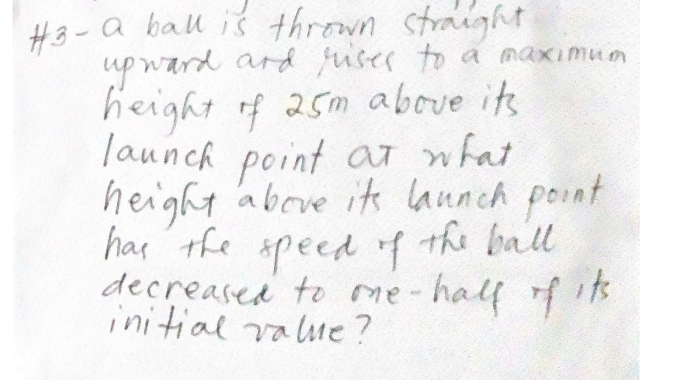 #3- a ball is thrown straight
upward and rises to a maximum
height of 25m above its
launch point at what
height above its launch point
has the speed of the ball
decreased to one-half of its
initial value?